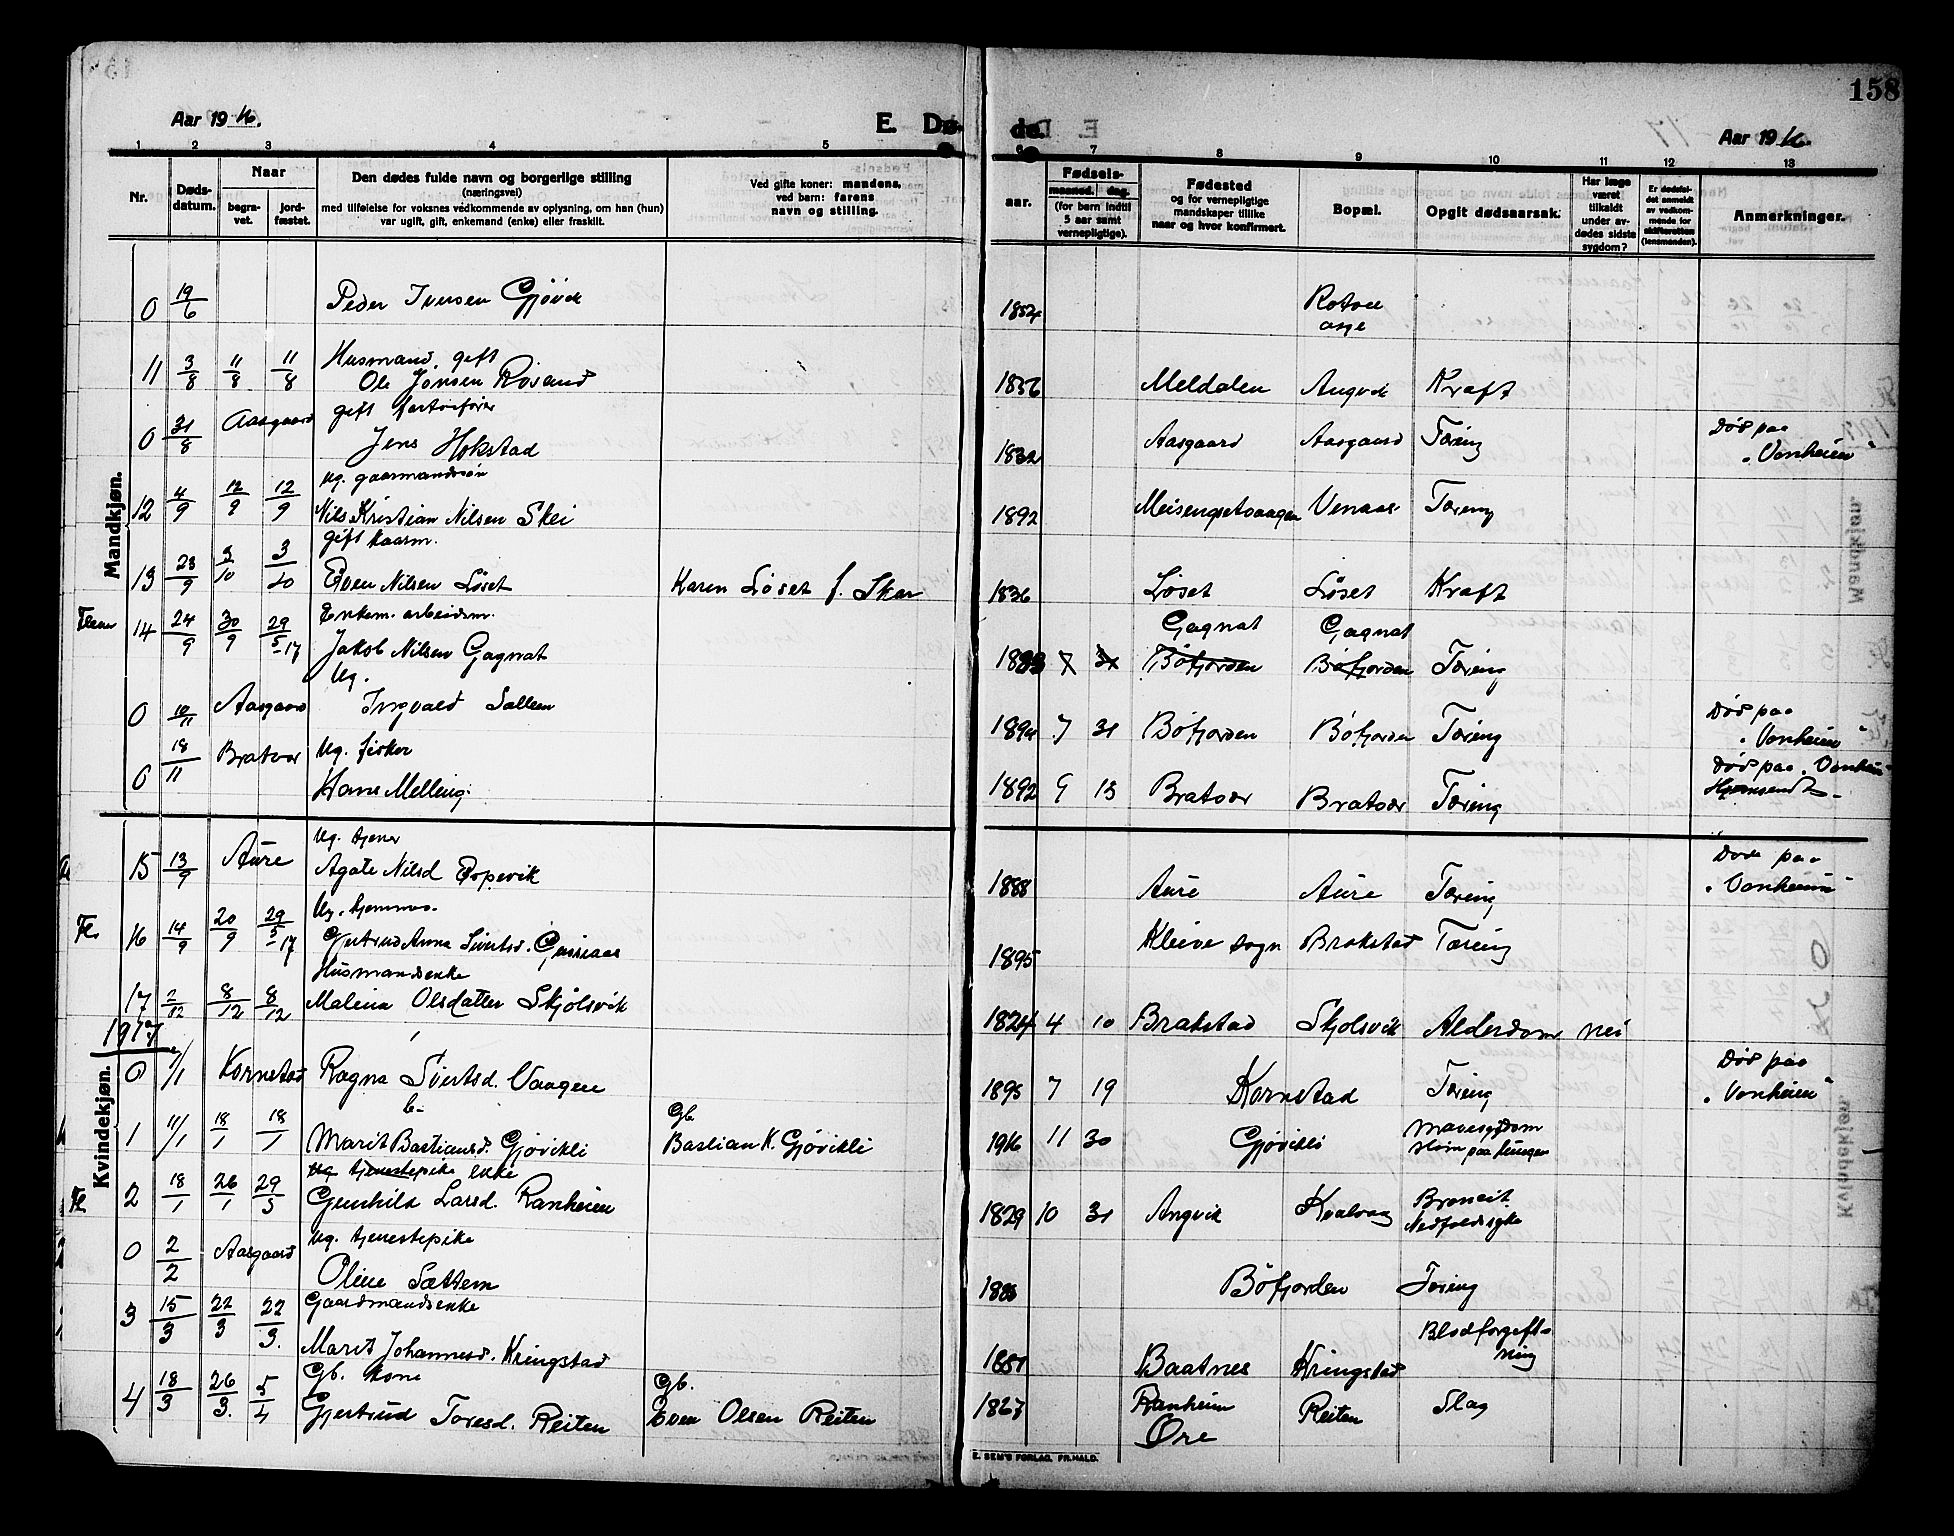 158
Aar 1916.
E. Dø-
de.
Aar 1916.
1 2 3 4 5 6 7 8 9 10 11 12 13
Nr.
Døds-
datum.
Naar
begra-
vet.
jord-
fæstet.
Den dødes fulde navn og borgerlige stilling
(næringsvei)
med tilføielse for voksnes vedkommende av oplysning, om han (hun)
var ugift, gift, enkemand (enke) eller fraskilt.
Ved gifte koner: mandens,
ved børn: farens
navn og stilling.
aar.
Fødsels-
maaned. dag.
(for børn indtil
5 aar samt
vernepligtige).
Fødested
og for vernepligtige
mandskaper tillike
naar og hvor konfirmert.
Bopæl.
Opgit dødsaarsak.
Har læge
været
tilkaldt
under av-
dødes sidste
sygdom?
Er dødsfal-
det anmeldt
av vedkom-
mende for
skifteretten
(lensmanden).
Anmerkninger.
Mandkjøn.
0 19/6 Peder Iversen Gjøvik 1854
Husmand, gift
11 3/8 11/8 11/8 Ole Jonsen Rosand 1856 Meldalen Angvik Kraft
gift
0 31/8 Aasgaard Jens Hokstad 1832 Aasgaard Aasgaard Tæring Død paa
"Vonheim"
ug. gaarmandssøn
12 4/9 12/9 12/9 Nils Kristian Nilsen Skei 1892 Tæring
gift kaarm.
13 23/9 3/10 3/10 Even Nilsen Løset Karen Løset f. Skar 1836 Løset Løset Kraft
Enkem. arbeidsm. Gagnat Gagnat
14 24/9 30/9 29/5-17 Jakob Nilsen Gagnat Bøfjorden Bøfjorden Tæring
Ug.
0 10/11 Aasgaard Ingvald Sættem 1894 7 31 Bøfjorden Bøfjorden Tæring Død paa
"Vonheim"
0 18/11 Bratvær Ug. fisker Død paa "Vonheim"
Hans Melling. 1892 9 13 Bratvær Bratvær Tæring
Kvindekjøn.
Ug. tjener Døde paa
15 13/9 Aure Agate Nilsd Espevik 1888 Aure Aure Tæring "Vonheim"
Fl. 16 14/9 20/9 29/5-17 Gjertrud Anna Sivertsd. 1895 Kleive sogn Brakstad Tæring
Husmandsenke
17 2/12 8/12 8/12 Malena Olsdatter Skjølsvik 1824 4 10 Brakstad Skjølsvik Alderdom nei
1917
0 7/1 Kornstad Ragna Sivertsd. Vaagen 1895 7 19 Kornstad Tæring Død paa
"Vonheim"
b- Gb.
1 11/1 18/1 18/1 Marit Bastiansd. Gjøvikli Bastian K. Gjøvikli 1916 11 30 Gjøvikli Mavesygdom
slim paa lungen
Ug tjenestepike enke
Fl 2 18/1 26/1 29/5 Gunhild Larsd. Ranheim 1829 10 31 Angvik Kvalvaag Broncit
Nedfaldssyke
Ug. tjenestepike
0 2/2 Aasgaard Oline Sættem Bøfjorden Tæring
Gaardmandsenke
3 15/3 22/3 22/3. Marit Johannesd. Kringstad 1851 Baatnes Kringstad Blodforgift-
ning
Gb. kone Gb.
4 18/3 26/3. 5/4 Gjertrud Toresd. Reiten Even Olsen Reiten 1867 Ranheim Reiten Slag
Øre
E. SEM'S FORLAG, FR.HALD.